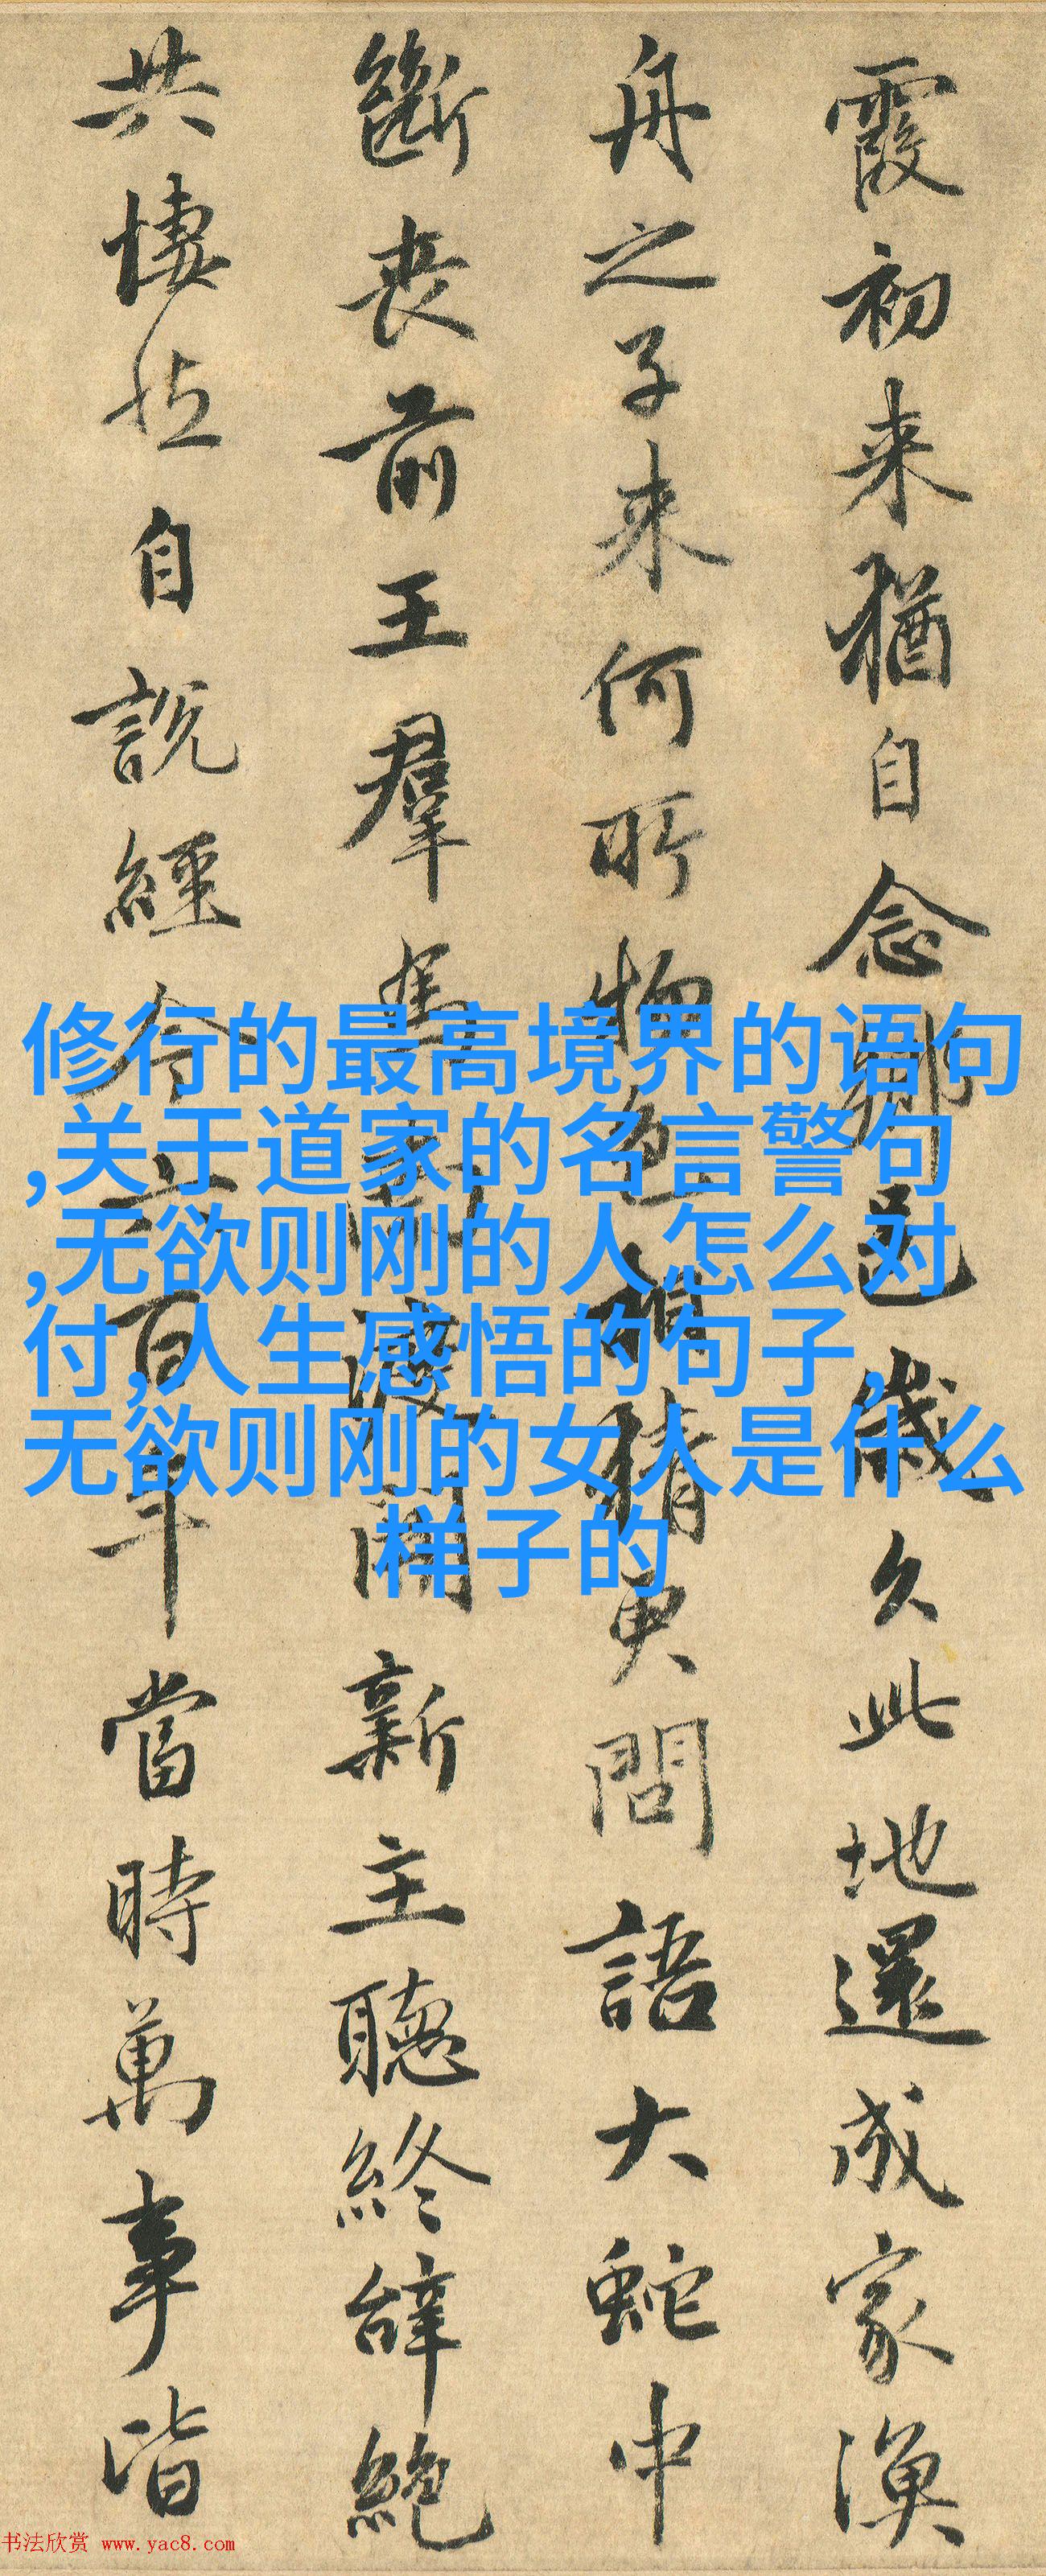 霞初来猶自念鄉邑歲久此地還成家漁
舟之子来何所物色相猜更問語大蛇中
斷喪前王羣馬南渡開新主聽終辭絶
共悽然自說經今六百年當時萬事皆
修行的最高境界的语句
,关于道家的名言警句
,无欲则刚的人怎么对
付,人生感悟的句子,
无欲则刚的女人是什么
样子的
书法欣赏 www.yac8.com